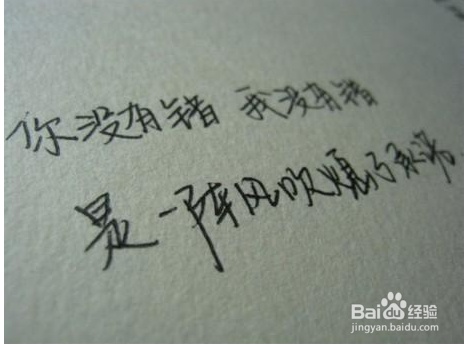 你没有错 我没有错
是一阵风吹熄了承诺
Bai du 经验
jingyan.baidu.com